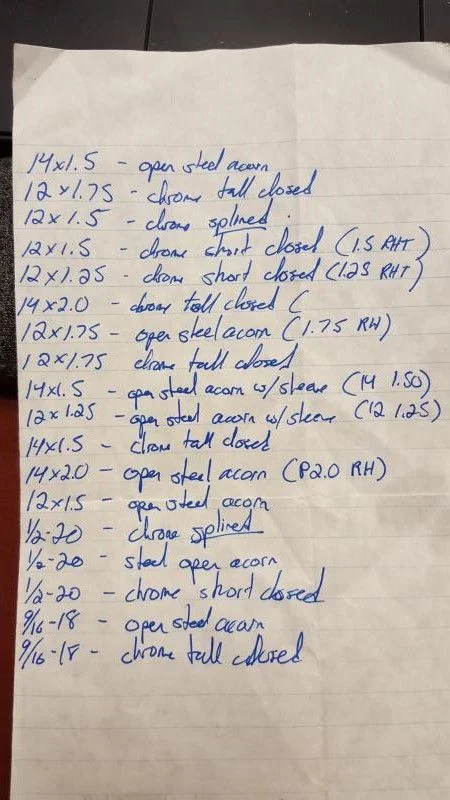 14x1.5 - open steel acorn
12x1.75 - chrome tall closed
12x1.5 - chrome splined.
12x1.5 - chrome short closed (1.5 RHT)
12x1.25 - chrome short closed (1.25 RHT)
14x2.0 - chrome tall closed (
12x1.75 - open steel acorn (1.75 RH)
12x1.75 chrome tall closed
14x1.5 - open steel acorn w/sleeve (14 1.50)
12x1.25 - open steel acorn w/sleeve (12 1.25)
14x1.5 - chrome tall closed
14x2.0 - open steel acorn (P2.0 RH)
12x1.5 - open steel acorn
1/2-20 - chrome splined
1/2-20 - steel open acorn
1/2-20 - chrome short closed
9/16-18 - open steel acorn
9/16-18 - chrome tall closed